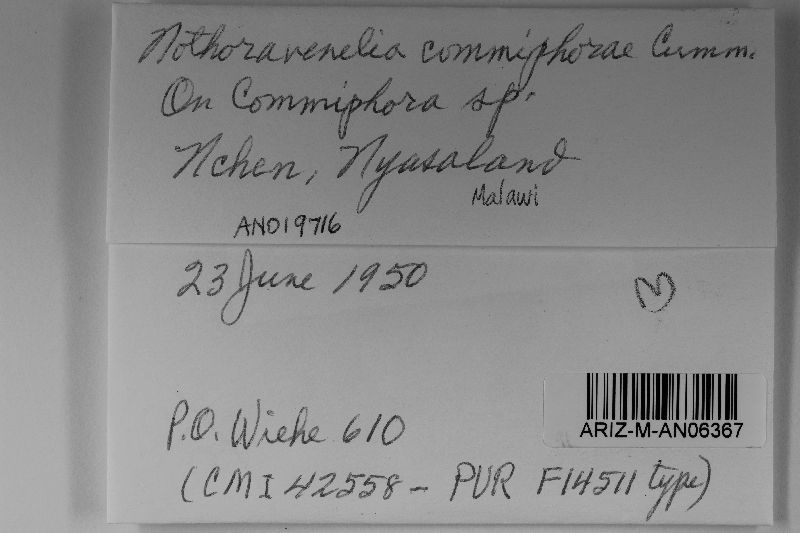 Nothoravenelia commiphorae Cumm.
On Commiphora sp.
Nchen, Nyasaland
Malawi
AN019716
23 June 1950
P.O. Wiehe 610
ARIZ-M-AN06367
(CMI 42558 - PUR F14511 type)